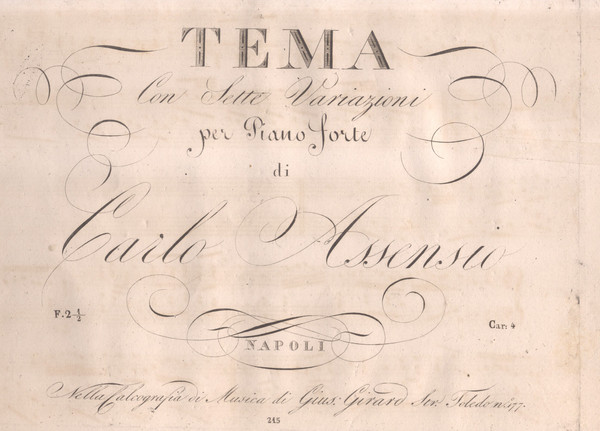 TEMA
Con Sette Variazioni
per Piano forte
di
Carlo Assensio
F. 2 1/2
Car: 4
NAPOLI
Nella Calcografia di Musica di Gius: Girard Toledo n.° 177.
215